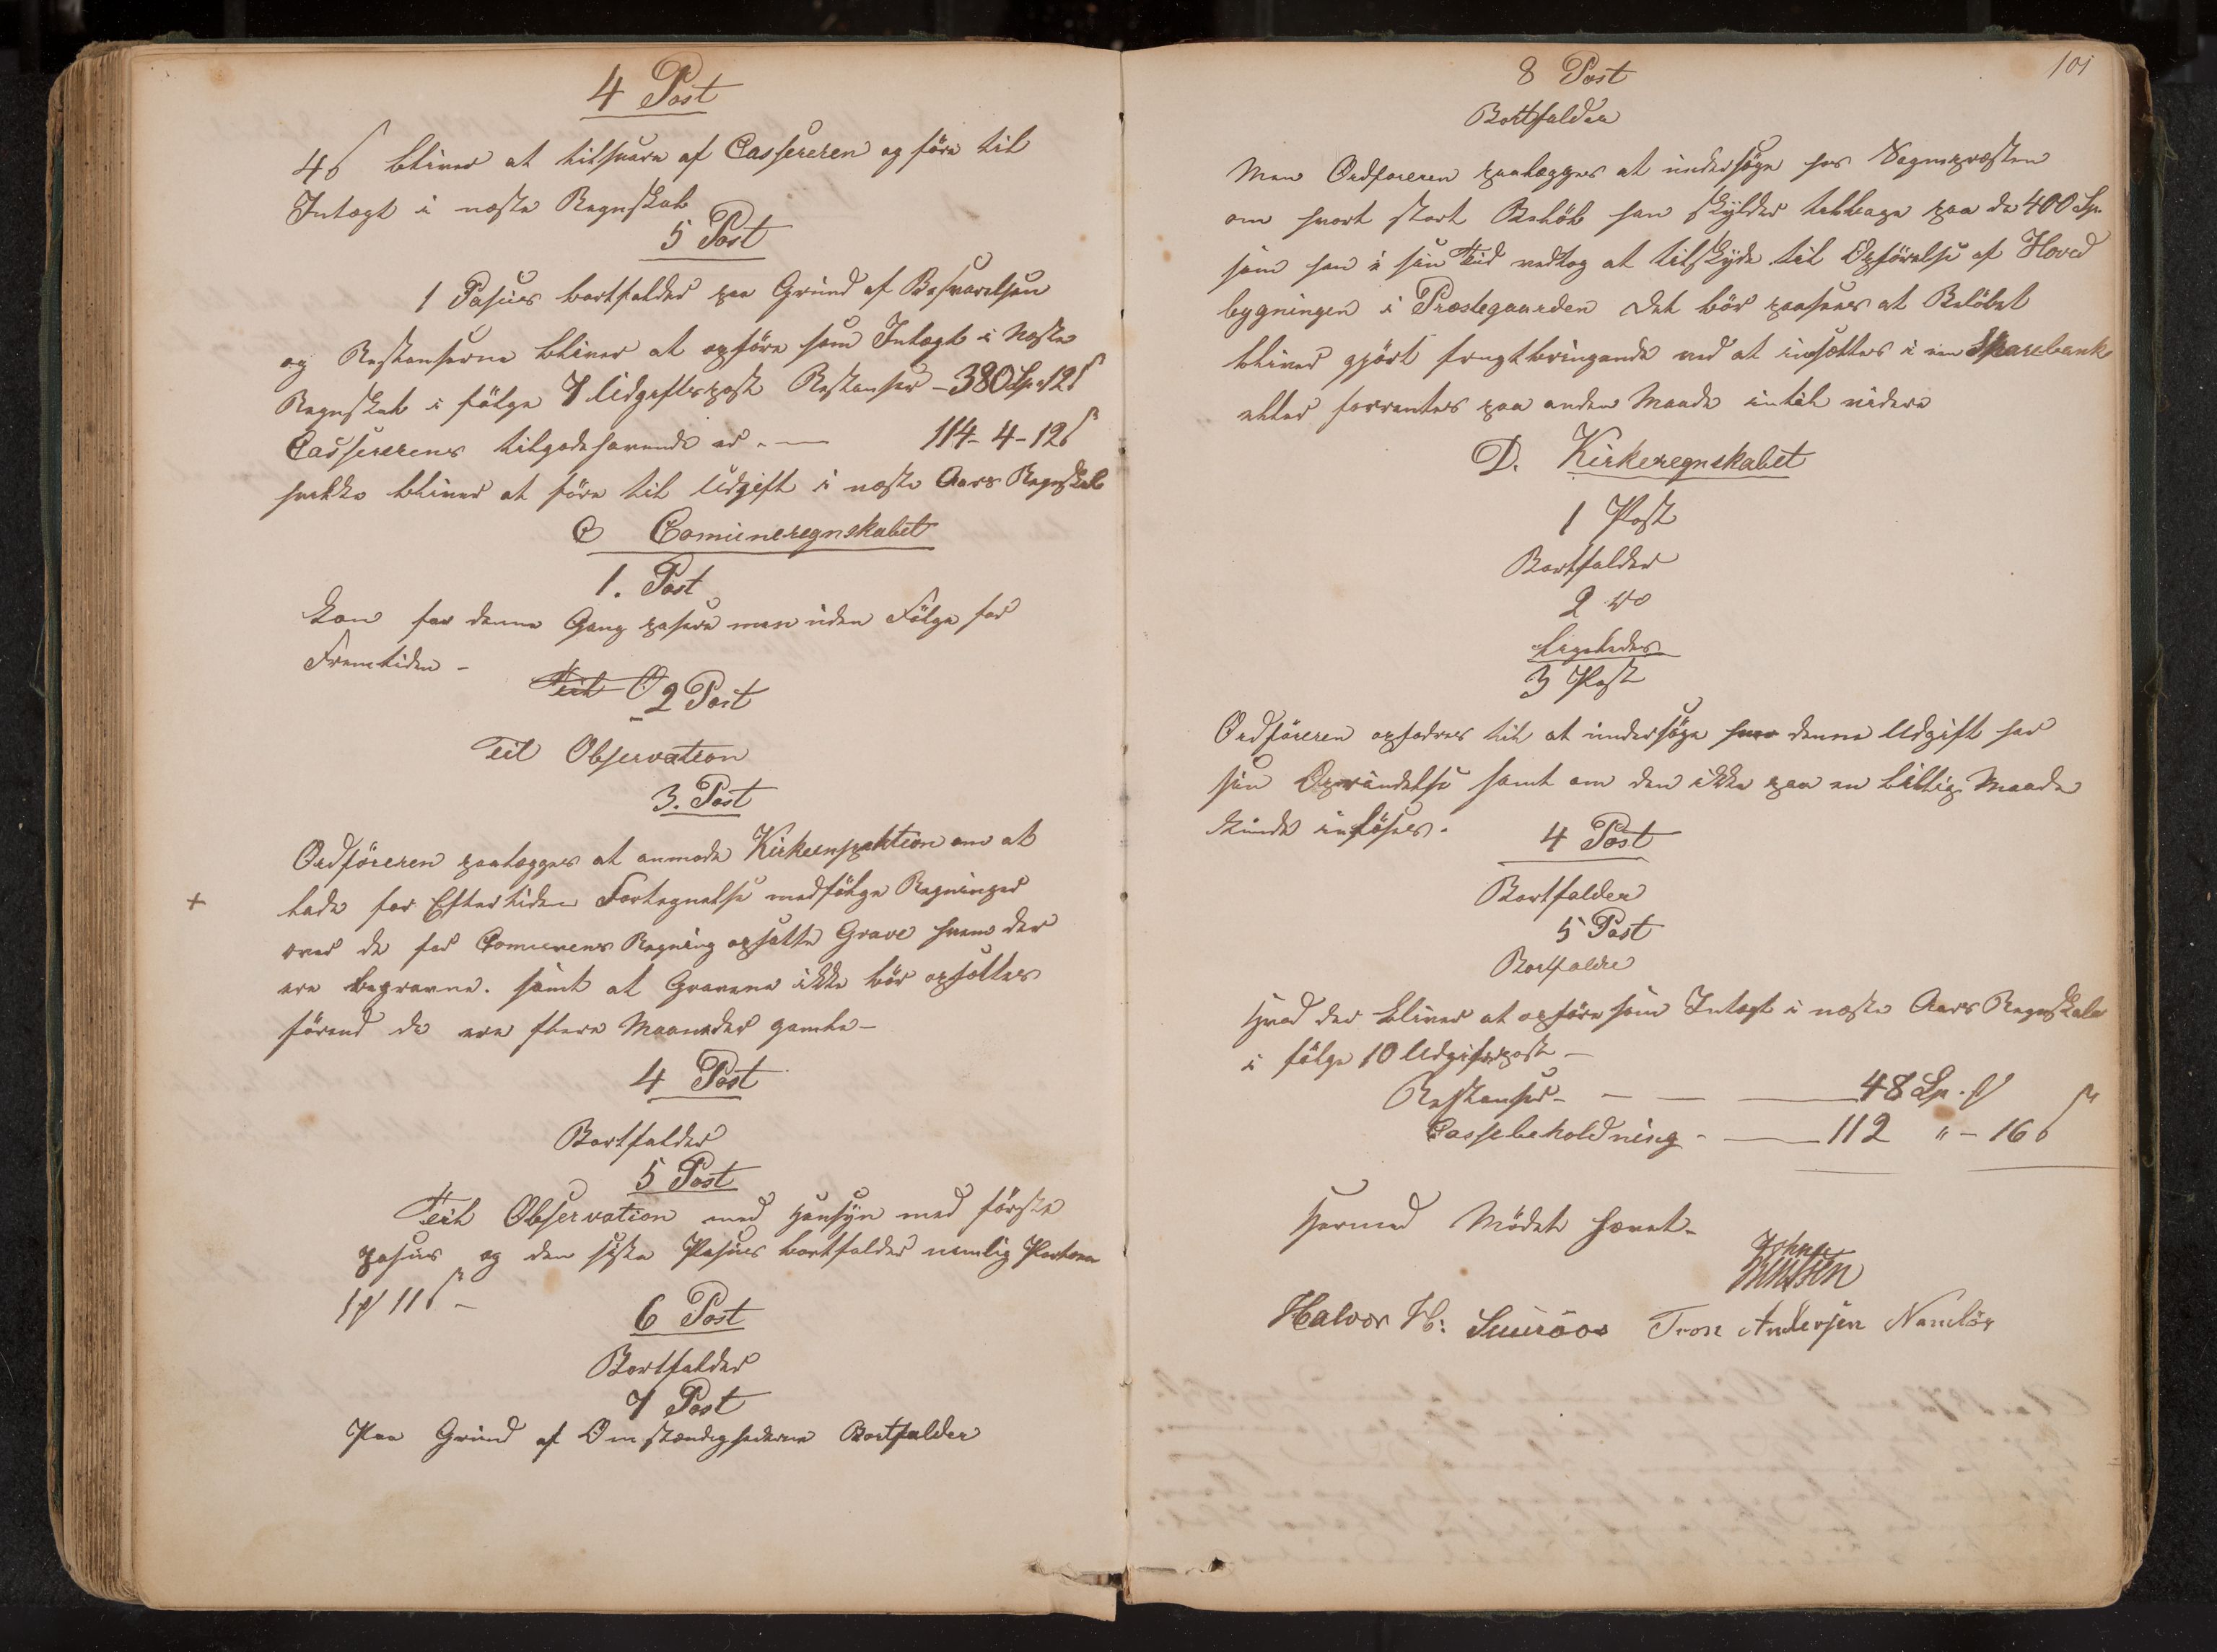 4 Post
4 ß bliver at tilsvare af Cassereren og føre til
Indtægt i næste Regnskab
5 Post
1 Passus bortfalder paa Grund af Besvarelsen
og Restanserne bliver at opføre som Indtægt i Næste
Regnskab i følge 7 Udgiftspost Restanser – 380 Sp 12 ß
Cassererens tilgodehavende er – 114 – 4 – 12 ß
hvilke bliver at føre til Udgift i næste Aars Regnskab
C Comuneregnskabet
1. Post
kan for denne Gang passere men uden Følge for
Fremtiden –
2 Post
Til Observation
3. Post
Ordføreren paalægges at anmode Kirkeinspektion om at
+ lade for Eftertiden Fortegnelse medfølge Regninger
over de for Comunens Regning opsatte Grave hvem der
ere begravne. samt at Gravene ikke bør opsættes
førend de ere flere Maaneder gamle –
4 Post
Bortfalder
5 Post
Til Observation med Hensyn med første
passus og den siste Passus bortfalder nemlig Portoen
1 # 11 ß –
6 Post
Bortfalder
7 Post
Paa Grund af Omstændighederne Bortfalder
101
8 Post
Bortfalder
Men Ordføreren paalægges at undersøge hos Sognepræsten
om hvort stort Beløb han skylder tilbage paa de 400 Sp.
som han i sin Tid vedtog at tilskyde til Opførelse af Hoved
bygningen i Præstegaarden Det bør paasees at Beløbet
bliver gjört frugtbringende ved at insættes i en Sparebank
eller forrentes paa anden Maade intil videre
D. Kirkeregnskabet
1 Post
Bortfalder
2 do
Ligeledes
3 Post
Ordføreren opfodres til at undersøge hvor denne Udgift har
sin Oprindelse samt om den ikke paa en billig Maade
kunde indløses.
4 Post
Bortfalder
5 Post
Bortfalder
Hvad der bliver at opføre som Intægt i næste Aars Regnskab
i følge 10 Udgiftspost –
Restanser – – – 48 Sp. #
Cassebeholdning – 112 " – 16 ß
Hermed Mødet hævet –
John
Knutsen
Halvor H: Tron Andersen